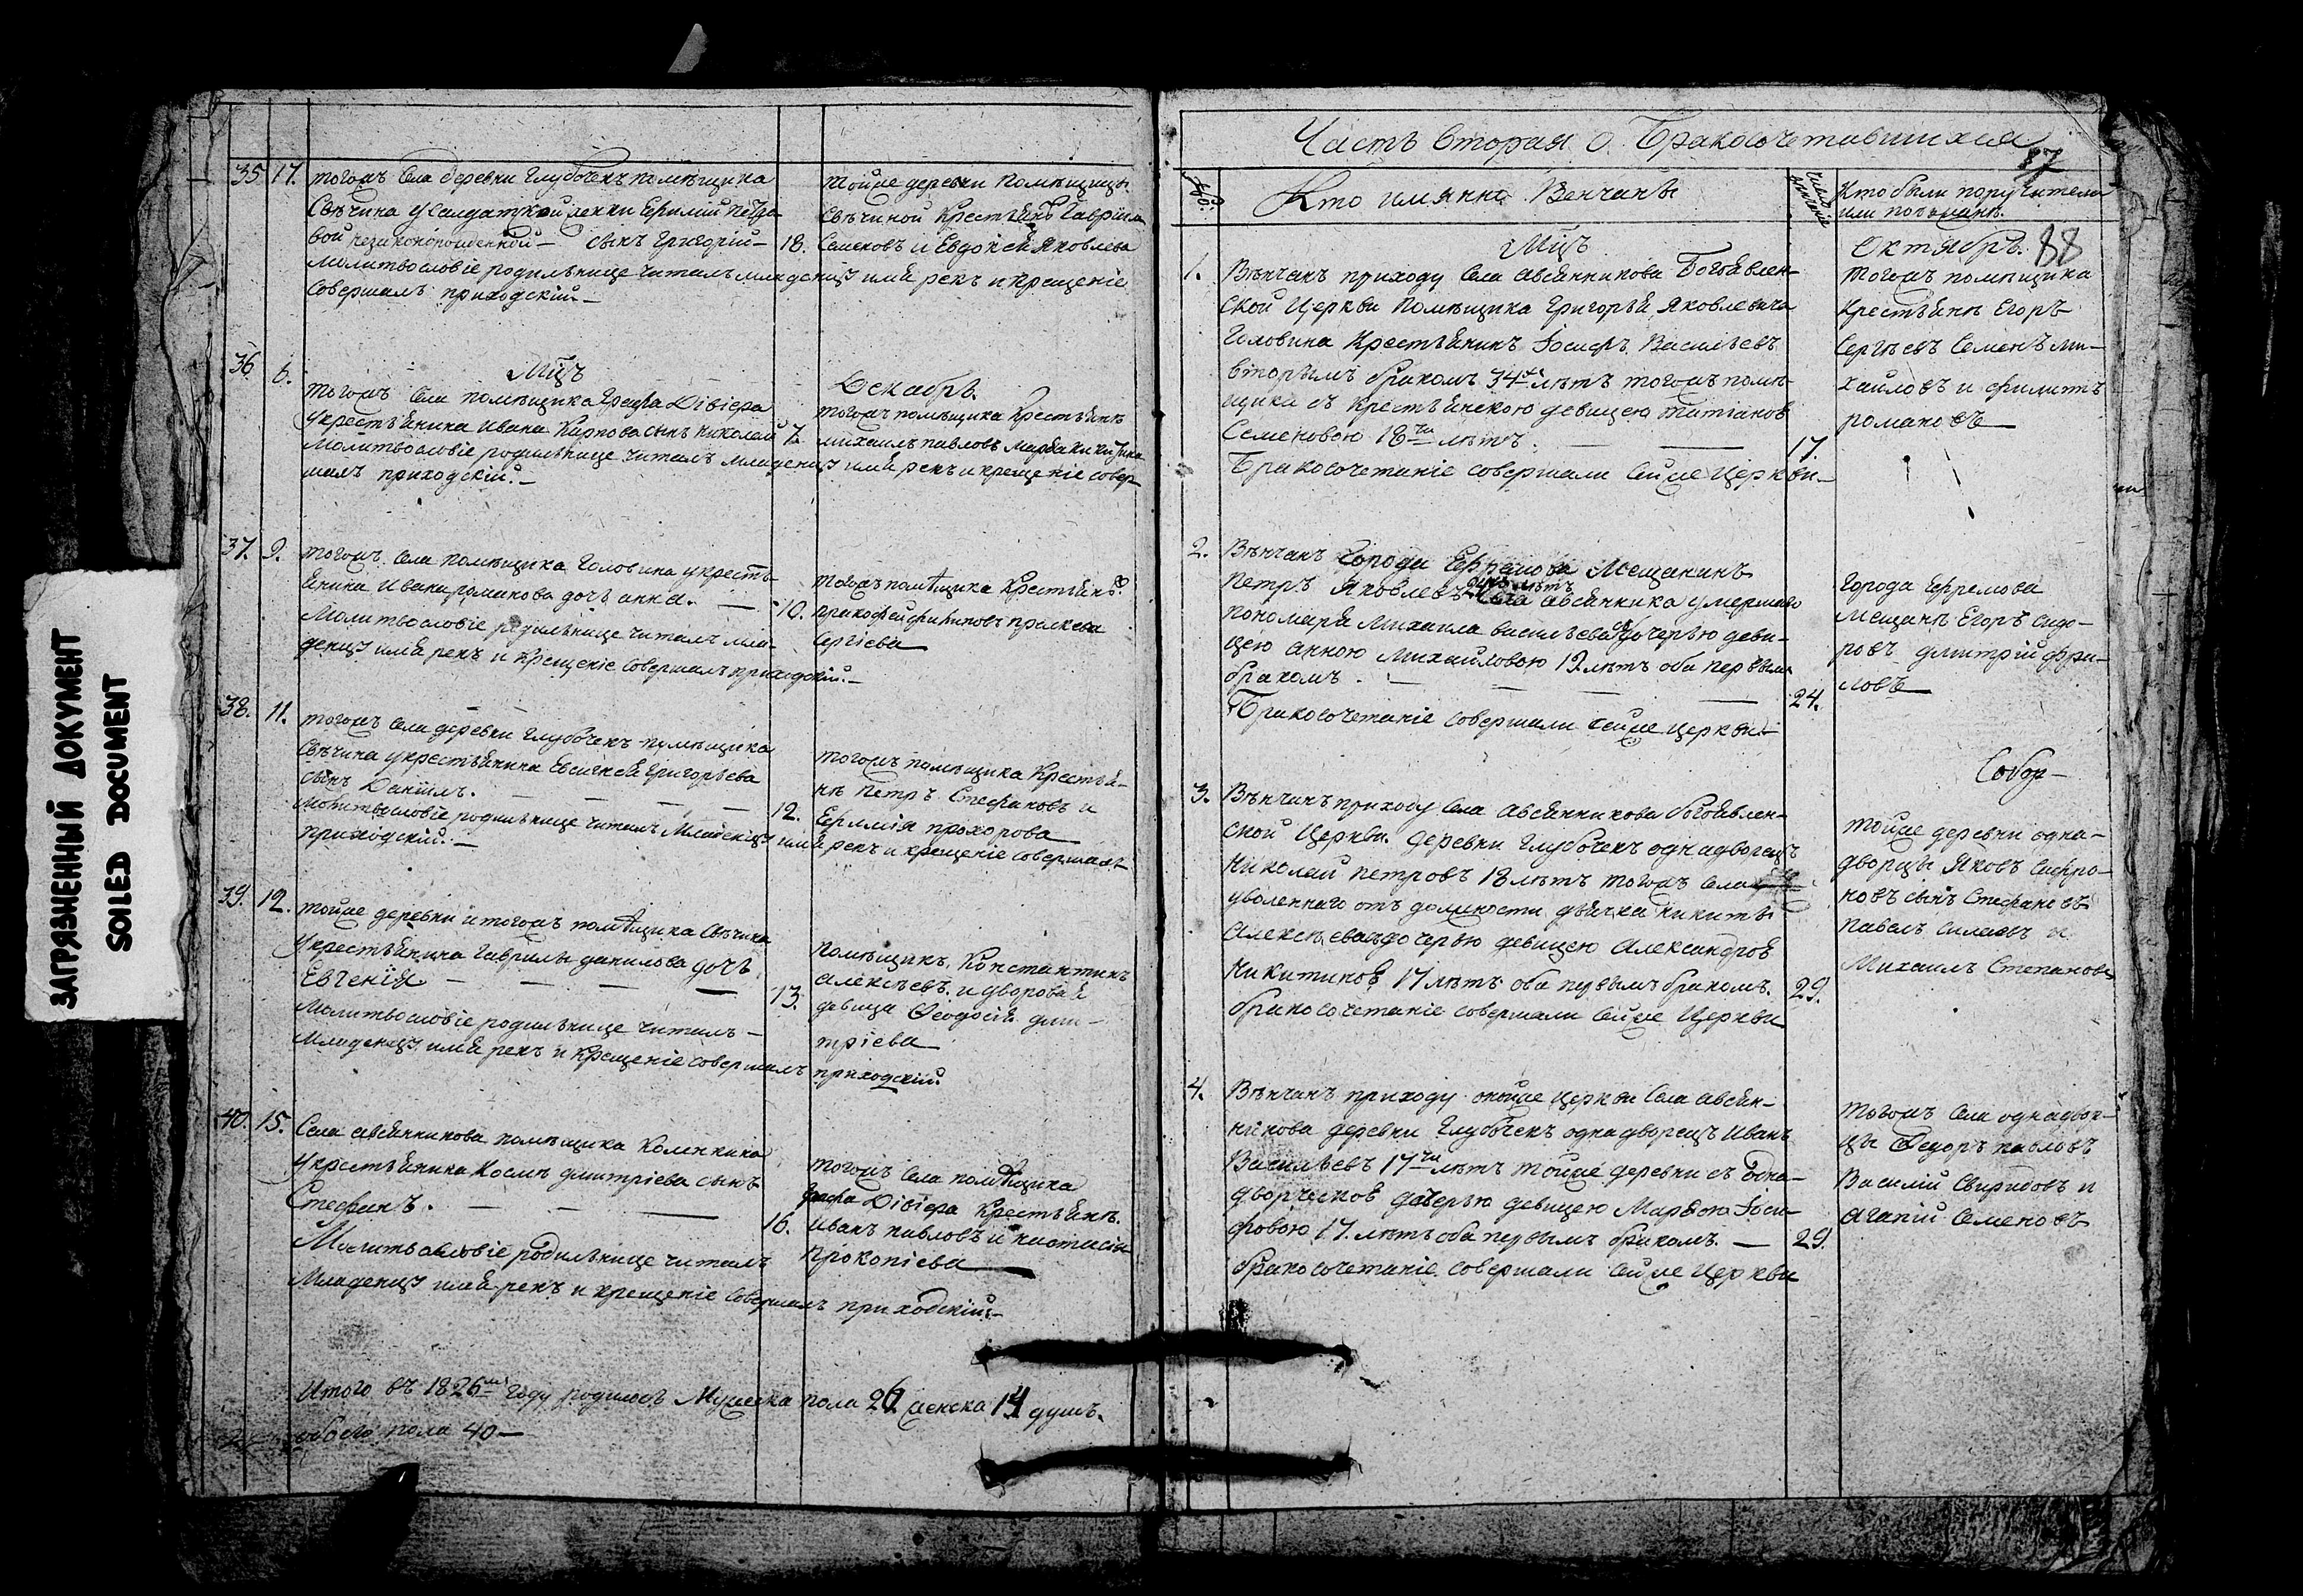 ЗАГРЯЗНЕННЫЙ ДОКУМЕНТ
SOILED DOCUMENT
35 17. тогожъ села деревни Глубочекъ помѣщика
Свѣчина у салдатской женки Ефимiи
вой незаконорожденной — сынъ Григорiй — 18.
молитвословiе родильнице читалъ младенцу имя рекъ и крещенiе
совершалъ приходскiй. —
тойже деревни помѣщицы
Свѣчиной крестьянъ Гаврiила
Семеновъ и Евдокея Яковлева
36. 6.
Мцъ Декабрь.
тогожъ села помѣщика Графа Дiвiера
у крестьянина Ивана Карпова сынъ Николай 7.
Молитвословiе родильнице читалъ младенцу имя рекъ и крещенiе совер
шалъ приходскiй. —
тогожъ помѣщика крестьянъ
Михаилъ Павловъ Марѳа
37. 9. тогожъ села помѣщика Головина у кресть
янина Ивана Романова дочь Анна. — 10.
Молитвословiе родильнице читалъ мла-
денцу имя рекъ и крещенiе совершалъ приходскiй. —
тогожъ помѣщика крестьянъ
Прокофей Филиповъ Прасковѣа
Сергiева
38. 11. тогожъ села деревни Глубочекъ помѣщика
Свѣчина у крестьянина Евсигнея Григорьева
сынъ Данiилъ. — — — — 12.
Молитвословiе родильнице читалъ младенцу имя рекъ и крещенiе совершалъ
приходскiй. —
тогожъ помѣщика крестья-
нъ Петръ Стефановъ и
Прохорова
39. 12. тойже деревни и тогожъ помѣщика Свѣчина
у крестьянина Гаврилы Данилова дочь
Евгенiя — — — — 13.
Молитвословiе родильнице читалъ —
Младенцу имя рекъ и крещенiе совершалъ приходскiй.
помѣщикъ Константинъ
Алексѣевъ и дворовая
девица Ѳеодосiя Дми-
трiева
40. 15. Села Авсянникова помѣщика Коленкина
у крестьянина Косьмы Дмитрiева сынъ
Стефанъ. — — — 16.
Молитвословiе родильнице читалъ
Младенцу имя рекъ и крещенiе совершалъ приходскiй. —
тогожъ села помѣщика
Графа Дiвiера крестьянъ
Иванъ Павловъ и Настасiя
Прокопiева
Итого въ 1826мъ году родилось Мужеска пола 26 женска 14 душъ.
обоего пола 40 —
Часть вторая о Бракосочетавшихся
87
88
№
Кто имянно Венчаны
Кто были поручители
или поѣзжанѣ.
Мцъ Октябрь.
1. Вѣнчанъ приходу села Авсянникова Богоявлен-
ской Церкви помѣщика Григорья Яковлевича
Головина крестьянинъ Iосифъ Васильевъ
вторымъ бракомъ 34хъ лѣтъ тогожъ помѣ-
щика съ крестьянскою девицею Татiаною
Семеновою 18ти лѣтъ. — — 17.
Бракосочетанiе совершали сейже Церкви —
тогожъ помѣщика
крестьянъ Егоръ
Сергѣевъ Семенъ Ми-
хаиловъ и Филипъ
Романовъ —
2. Вѣнчанъ города Ефремова мещанинъ
Петръ Яковлевъ лѣтъ села Авсянника умершаго
пономаря Михаила Васильева дочерью деви-
цею Анною Михаиловою 19 лѣтъ оба первымъ
бракомъ. — — — — — 24.
Бракосочетанiе совершали сейже церкви —
города Ефремова
мещанъ Егоръ Сидо-
ровъ Дмитрiй
ловъ —
3. Вѣнчанъ приходу села Авсянникова Богоявлен-
ской Церкви деревни Глубочекъ однадворецъ
Николай Петровъ 18 лѣтъ тогожъ села
уволеннаго отъ должности дьячка Никиты
Алексѣева дочерью девицею Александрою
Никитиною 17 лѣтъ оба первымъ бракомъ. 29.
бракосочетанiе совершали сейже Церкви
тойже деревни одна-
дворцы Яковъ Сафро-
новъ сынъ Стефановъ
Павелъ Силаевъ и
Михаилъ Степановъ
4. Вѣнчанъ приходу онойже церкви села Авсян-
никова деревни Глубочекъ однадворецъ Иванъ
Васильевъ 17ти лѣтъ тойже деревни съ одна-
дворческою дочерью девицею Марѳою Iоси-
фовою 17. лѣтъ оба первымъ бракомъ. — 29.
бракосочетанiе совершали сейже Церкви
тогожъ села однадвор-
цы Федоръ Павловъ
Василiй Свиридовъ и
Агапiй Семеновъ